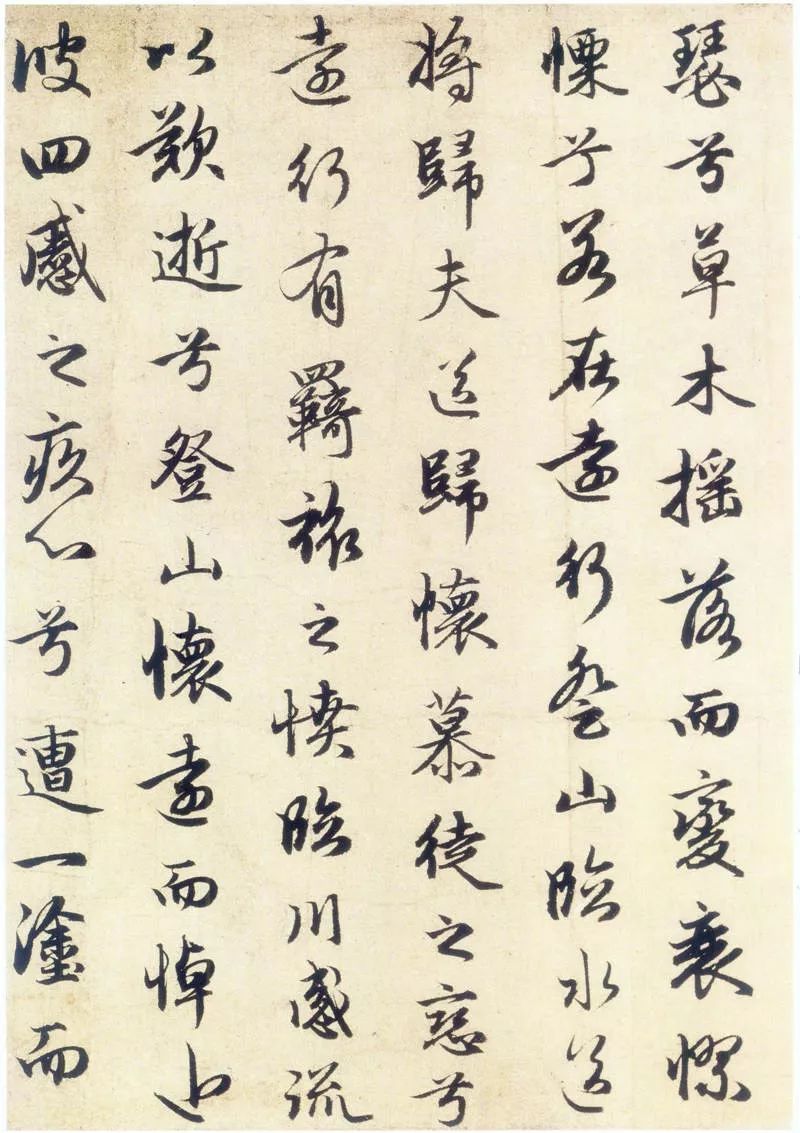 瑟兮草木摇落而變衰憭
慄兮若在遠行登山臨水送
將歸夫送歸懷慕徒之戀兮
遠行有羇旅之憤臨川感流
以歎逝兮登山懷遠而悼近
彼四慼之疚心兮遭一塗而